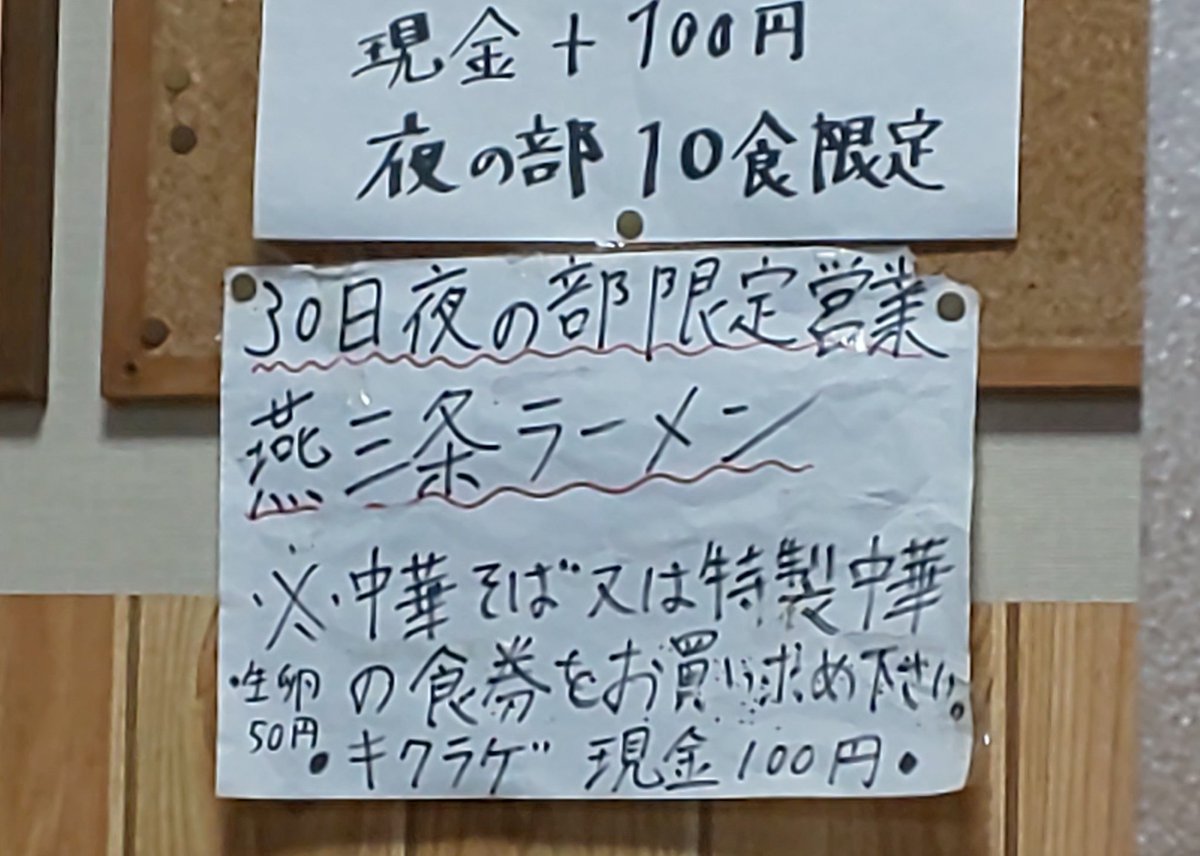 現金+100円
夜の部 10食限定
30日夜の部限定営業
燕三条ラーメン
※中華そば又は特製中華
の食券をお買い求め下さい。
・生卵
50円。
キクラゲ 現金100円・